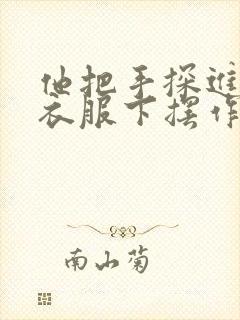 他把手探进
衣服下摆作
南山菊